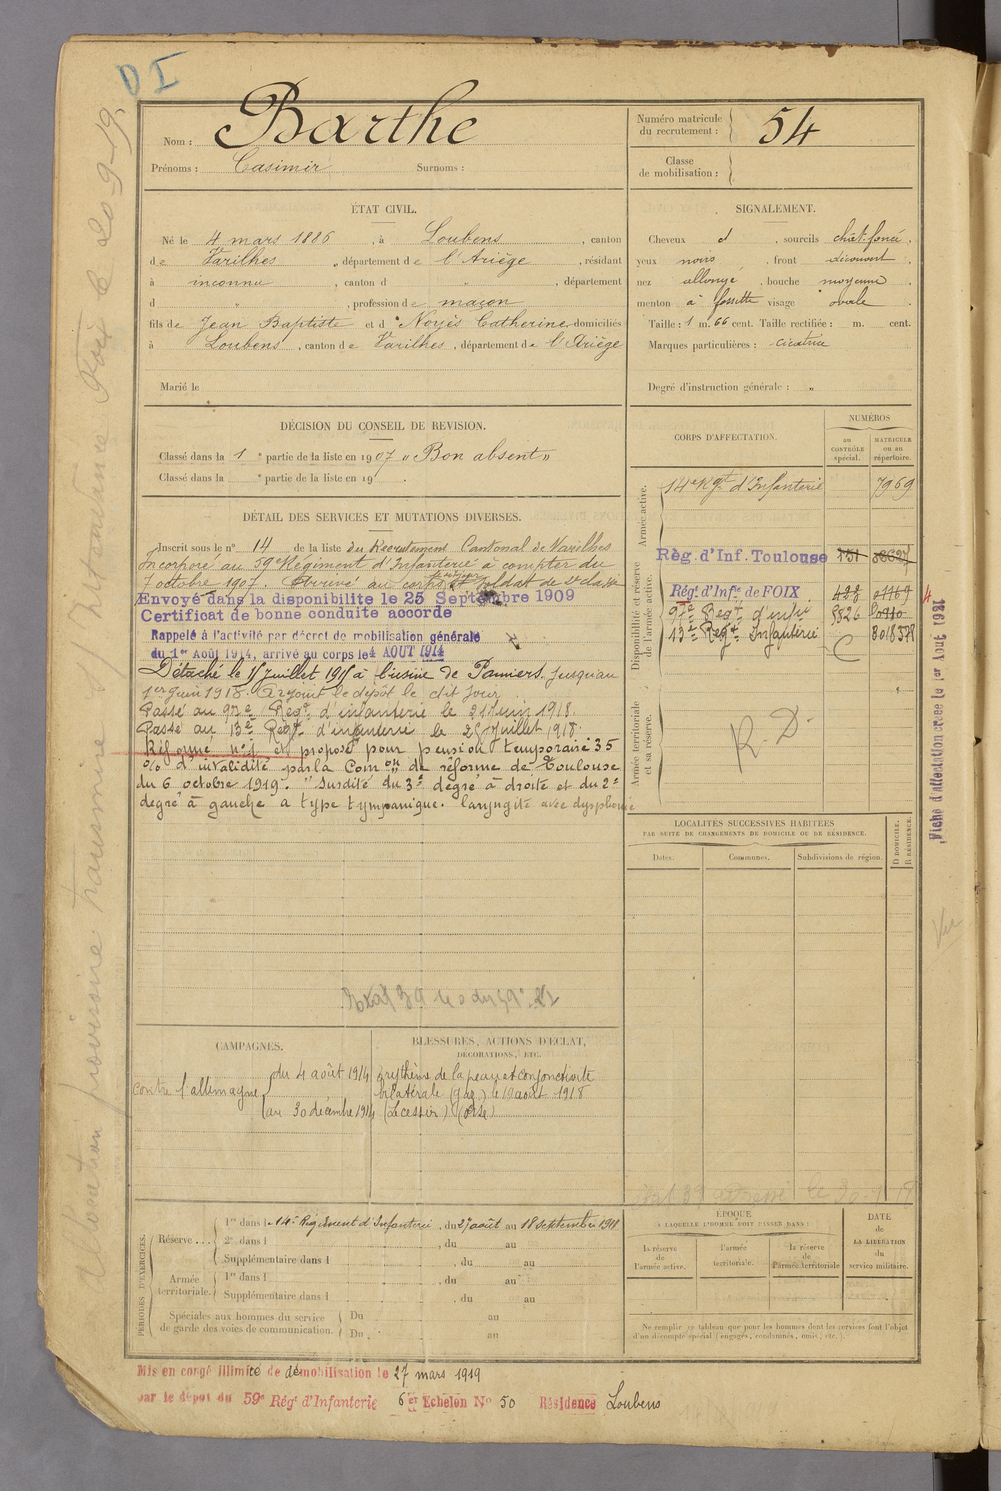 DI
Nom : Barthe
Prénoms : Casimir Surnoms :
Numéro matricule du recrutement : 54
Classe de mobilisation :
ÉTAT CIVIL.
Né le 4 mars 1886, à Loubens, canton
de Varilhes, département de l'Ariège, résidant
à inconnu, canton d " , département
d " , profession de maçon
fils de Jean Baptiste et d Noyès Catherine domiciliés
à Loubens, canton de Varilhes, département de l'Ariège
Marié le
SIGNALEMENT.
Cheveux d , sourcils chât. foncé,
yeux noirs, front découvert,
nez allongé, bouche moyenne,
menton à fossette visage ovale
Taille : 1 m. 66 cent. Taille rectifiée : m. cent.
Marques particulières : cicatrice
Degré d'instruction générale : "
DÉCISION DU CONSEIL DE REVISION.
Classé dans la 1e partie de la liste en 1907 " Bon absent "
Classé dans la e partie de la liste en 19 .
DÉTAIL DES SERVICES ET MUTATIONS DIVERSES.
Inscrit sous le n° 14 de la liste du Recrutement Cantonal de Varilhes
Incorporé au 59e Régiment d'Infanterie à compter du
7 octobre 1907. Arrivé au corps et soldat de 2e classe
Envoyé dans la disponibilite le 25 Septembre 1909
Certificat de bonne conduite accorde
Rappelé à l'activité par décret de mobilisation générale
du 1er Août 1914, arrivé au corps le 4 AOUT 1914
Détaché le 15 juillet 1915 à l'usine de Pamiers jusqu'au
1er Juin 1918. Rejoint le dépôt le dit jour
Passé au 97e Regt d'infanterie le 21 Juin 1918.
Passé au 13e Regt d'infanterie le 25 Juillet 1918
Réformé n°1 et proposé pour pension temporaire 35
% d'invalidité par la Comon de réforme de Toulouse
du 6 octobre 1919. " Surdité du 3e degré à droite et du 2e
degré à gauche a type tympanique. laryngite avec dysphonie
CORPS D'AFFECTATION.
NUMÉROS
au CONTRÔLE spécial.
MATRICULE ou au répertoire.
Armée active.
14e Rgt d'Infanterie 7969
Disponibilité et réserve de l'armée active.
Règ. d'Inf. Toulouse 151
Régt d'Infie de FOIX
97e Regt d'infie
13e Regt Infanterie
C
Armée territoriale et sa réserve.
R. D.
LOCALITÉS SUCCESSIVES HABITÉES
PAR SUITE DE CHANGEMENTS DE DOMICILE OU DE RÉSIDENCE.
Dates.
Communes.
Subdivisions de région.
D DOMICILE. R RÉSIDENCE.
Fiche d'affectation créée le 1er Aout 1921
Vu
CAMPAGNES.
contre l'allemagne
du 4 août 1914
au 30 décembre 1914
BLESSURES, ACTIONS D'ÉCLAT,
DÉCORATIONS, ETC.
érythème de la peau et conjonctivite
bilatérale (gaz) le 10 août 1918
(Oise)
PÉRIODES D'EXERCICES.
Réserve ....
1re dans le 14e Régiment d'Infanterie, du 27 août au 18 septembre 1911
2e dans l , du au
Supplémentaire dans l , du au
Armée territoriale.
1re dans l , du au
Supplémentaire dans l , du au
Spéciales aux hommes du service de garde des voies de communication.
Du au
Du au
ÉPOQUE
À LAQUELLE L'HOMME DOIT PASSER DANS :
la réserve de l'armée active.
l'armée territoriale.
la réserve de l'armée territoriale
DATE de LA LIBÉRATION du service militaire.
Ne remplir ce tableau que pour les hommes dont les services font l'objet
d'un décompte spécial (engagés, condamnés, omis, etc.).
Mis en congé illimité de démobilisation le 27 mars 1919
par le dépot du 59e Régt d'Infanterie 6e Echelon No 50 Résidence Loubens